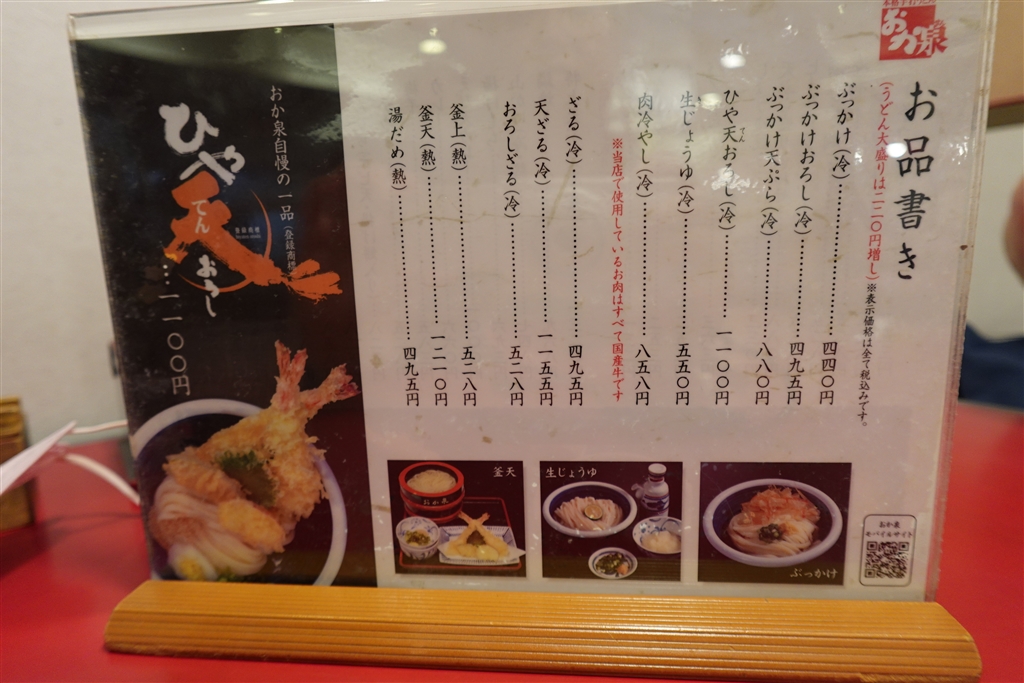 おか泉
お品書き
(うどん大盛りは二二〇円増し)※表示価格は全て税込みです。
ぶっかけ(冷)……四四〇円
ぶっかけおろし(冷)……四九五円
ぶっかけ天ぷら(冷)……八八〇円
ひや天おろし(冷)……一一〇〇円
てん
生じょうゆ(冷)……五五〇円
肉冷やし(冷)……八五八円
※当店で使用しているお肉はすべて国産牛です
ざる(冷)……四九五円
天ざる(冷)……一一五五円
おろしざる(冷)……五二八円
釜上(熱)……五二八円
釜天(熱)……一二一〇円
湯だめ(熱)……四九五円
おか泉自慢の一品(登録商標)
ひや天おろし
てん
…一一〇〇円
釜天
おか泉
生じょうゆ
ぶっかけ
おか泉
モバイルサイト